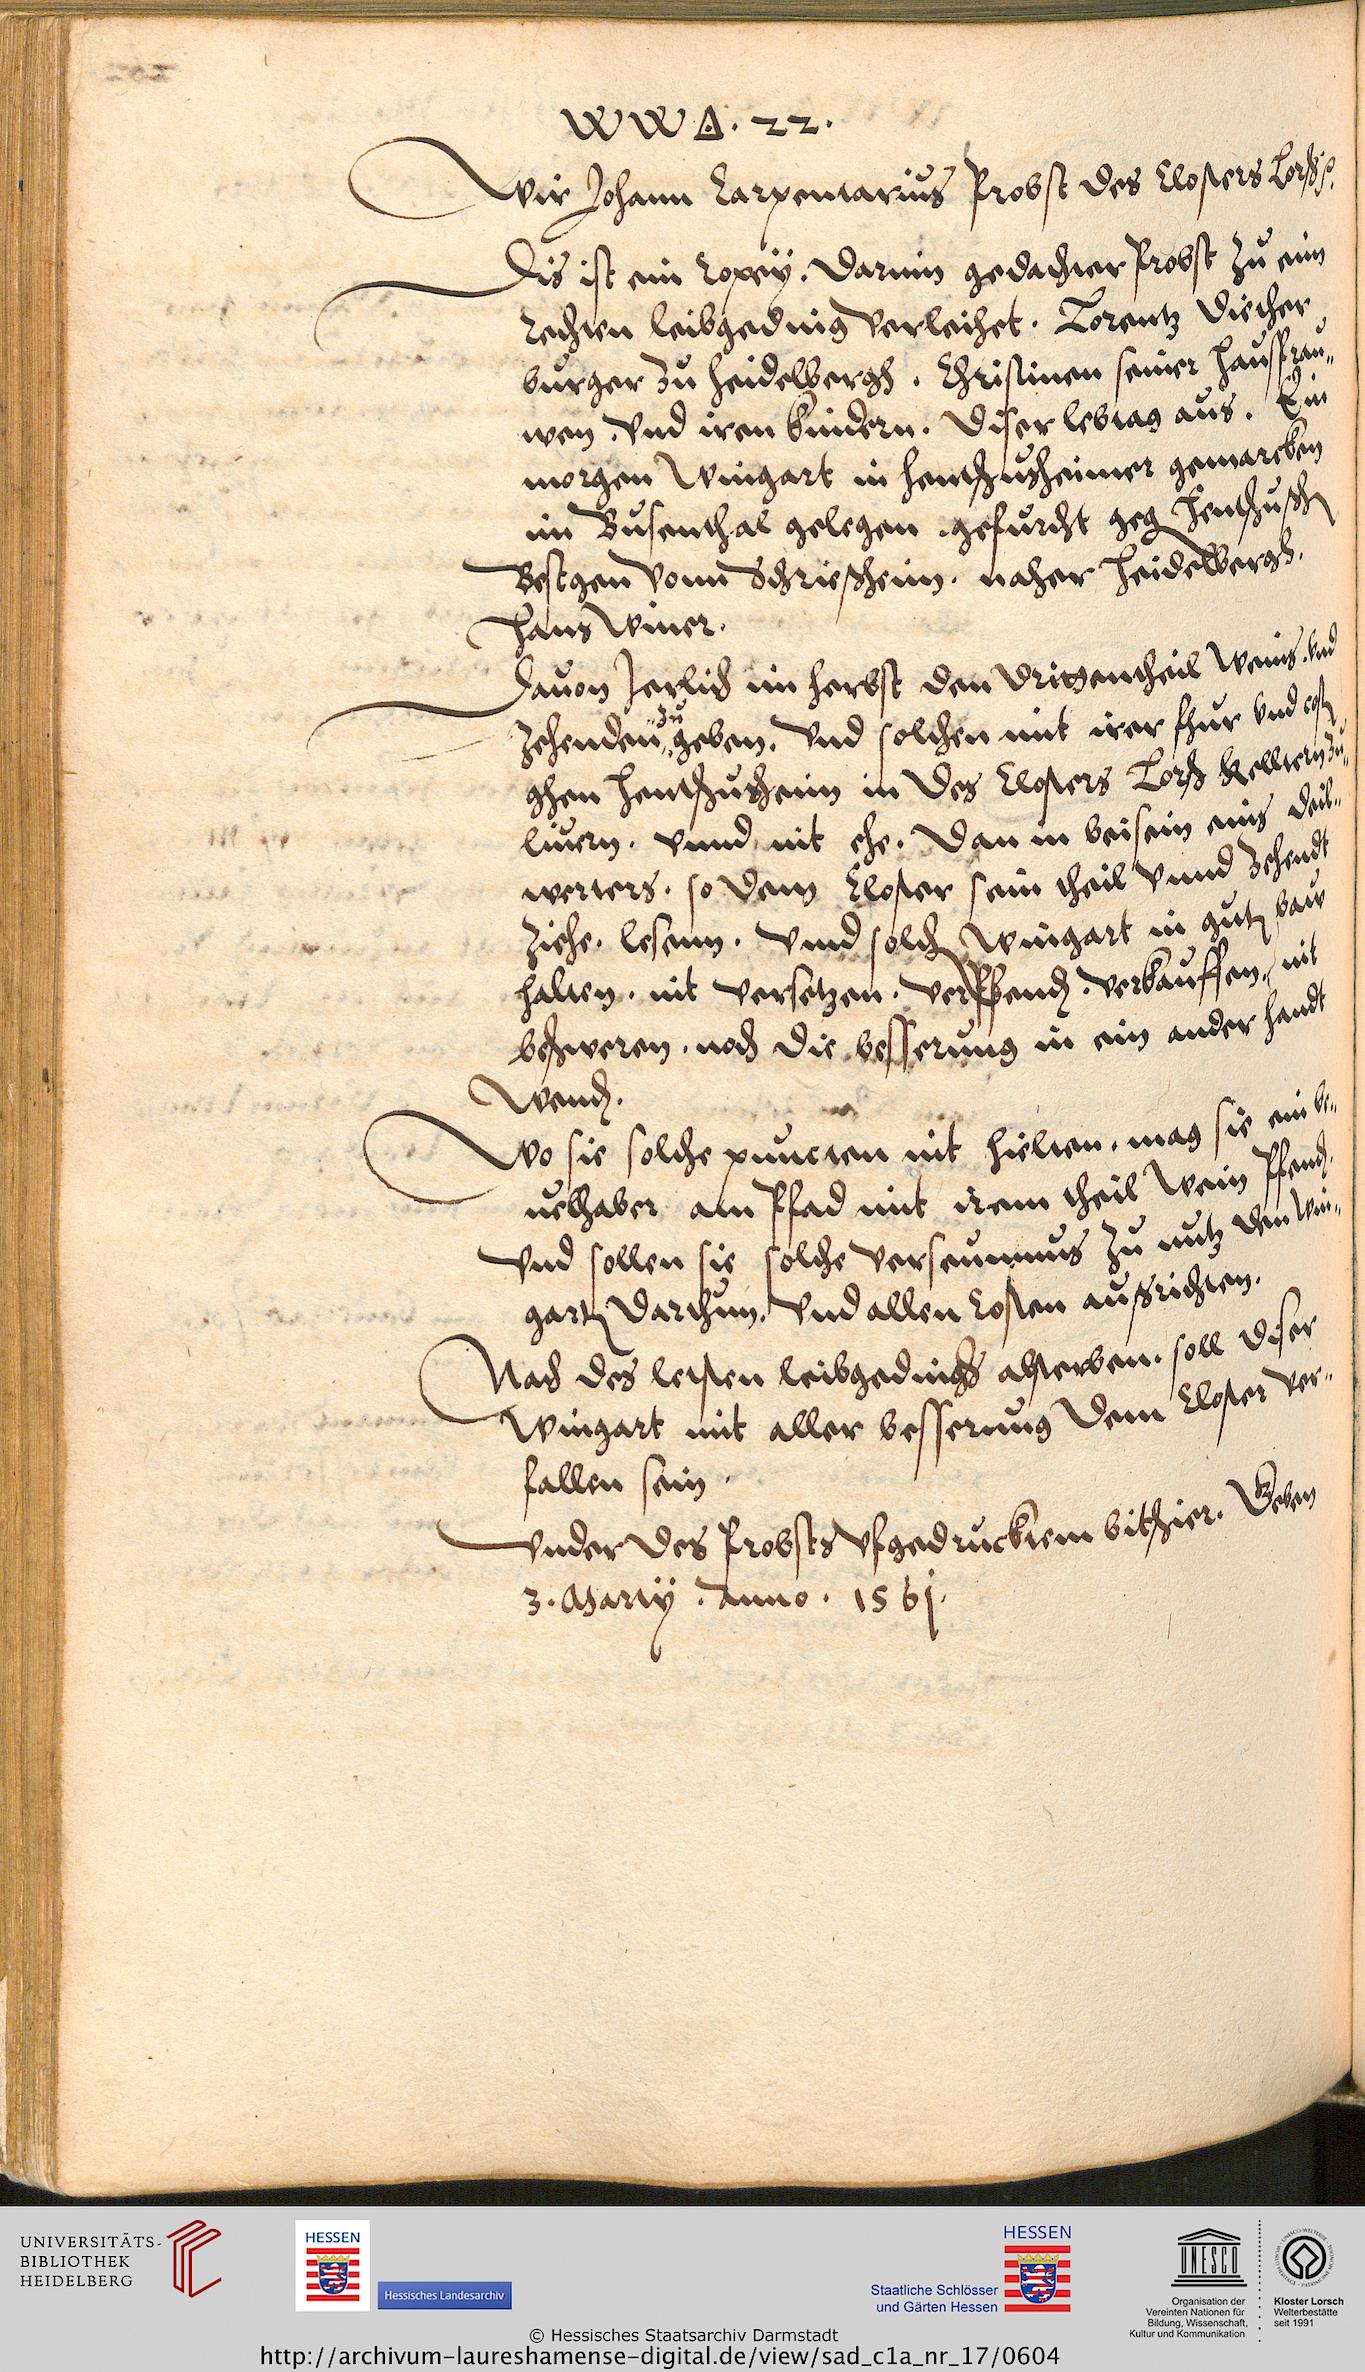 WWA. 22.
Wir Johann Carpentarius Probst des Closters Lorsch p.
Dis ist ein Copey. Darinn gedachter Probst zu eim
rechten leibgeding verleihet. Lorentz Diether
burger zu Heidelbergh. Christinen seiner hausfrau„
wen. vnd iren kindern. Diser lebtag aus. Ein
morgen Wingart in hentschusheimer gemarcken
im Busenthal gelegen. gefurcht geg hentschußh
Bestgen vonn Schrießheim. naher Heidelbergh.
Hans Winer.
Dauon Jerlich im herbst den dritentheil Weins. vnd
zehenden zu geben. vnd solchen mit irer fhur vnd cost
ghen hentschusheim in des Closters Lorsch kelltern zu„
liuern. vnnd nit ehe. Dan in beisein eins deil„
werters. so dem Closter sein theil vnnd zehendt
ziehe. lesenn. Vnnd solch Wingart in gutz bauw
halten. nit versetzen. verpfend. verkauffen. nit
beschweren. noch die besserung in ein ander handt
Wend.
Wo sie solche puncten nit hielten. mag sie ein be„
uelhaber am Pfad mit irem theil Wein Pfend.
vnd sollen sie solche verseumnus zu nutz den Win„
gart darthun. vnd allen Costen außrichten.
Nach des letsten leibgedings absterben. soll diser
Wingart mit aller besserung dem Closter ver„
fallen sein.
Vnder des Probsts vfgedrucktem bitschier. Geben
3. Martij. Anno. 1561.
UNIVERSITÄTS-
BIBLIOTHEK
HEIDELBERG
HESSEN
Hessisches Landesarchiv
HESSEN
Staatliche Schlösser
und Gärten Hessen
UNESCO
Organisation der
Vereinten Nationen für
Bildung, Wissenschaft,
Kultur und Kommunikation
Kloster Lorsch
Welterbestätte
seit 1991
© Hessisches Staatsarchiv Darmstadt
http://archivum-laureshamense-digital.de/view/sad_c1a_nr_17/0604